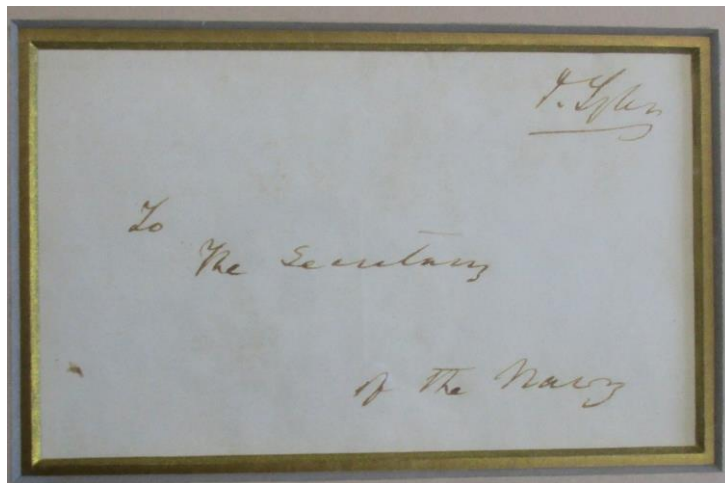 J. Tyler
To
The Secretary
of the Navy